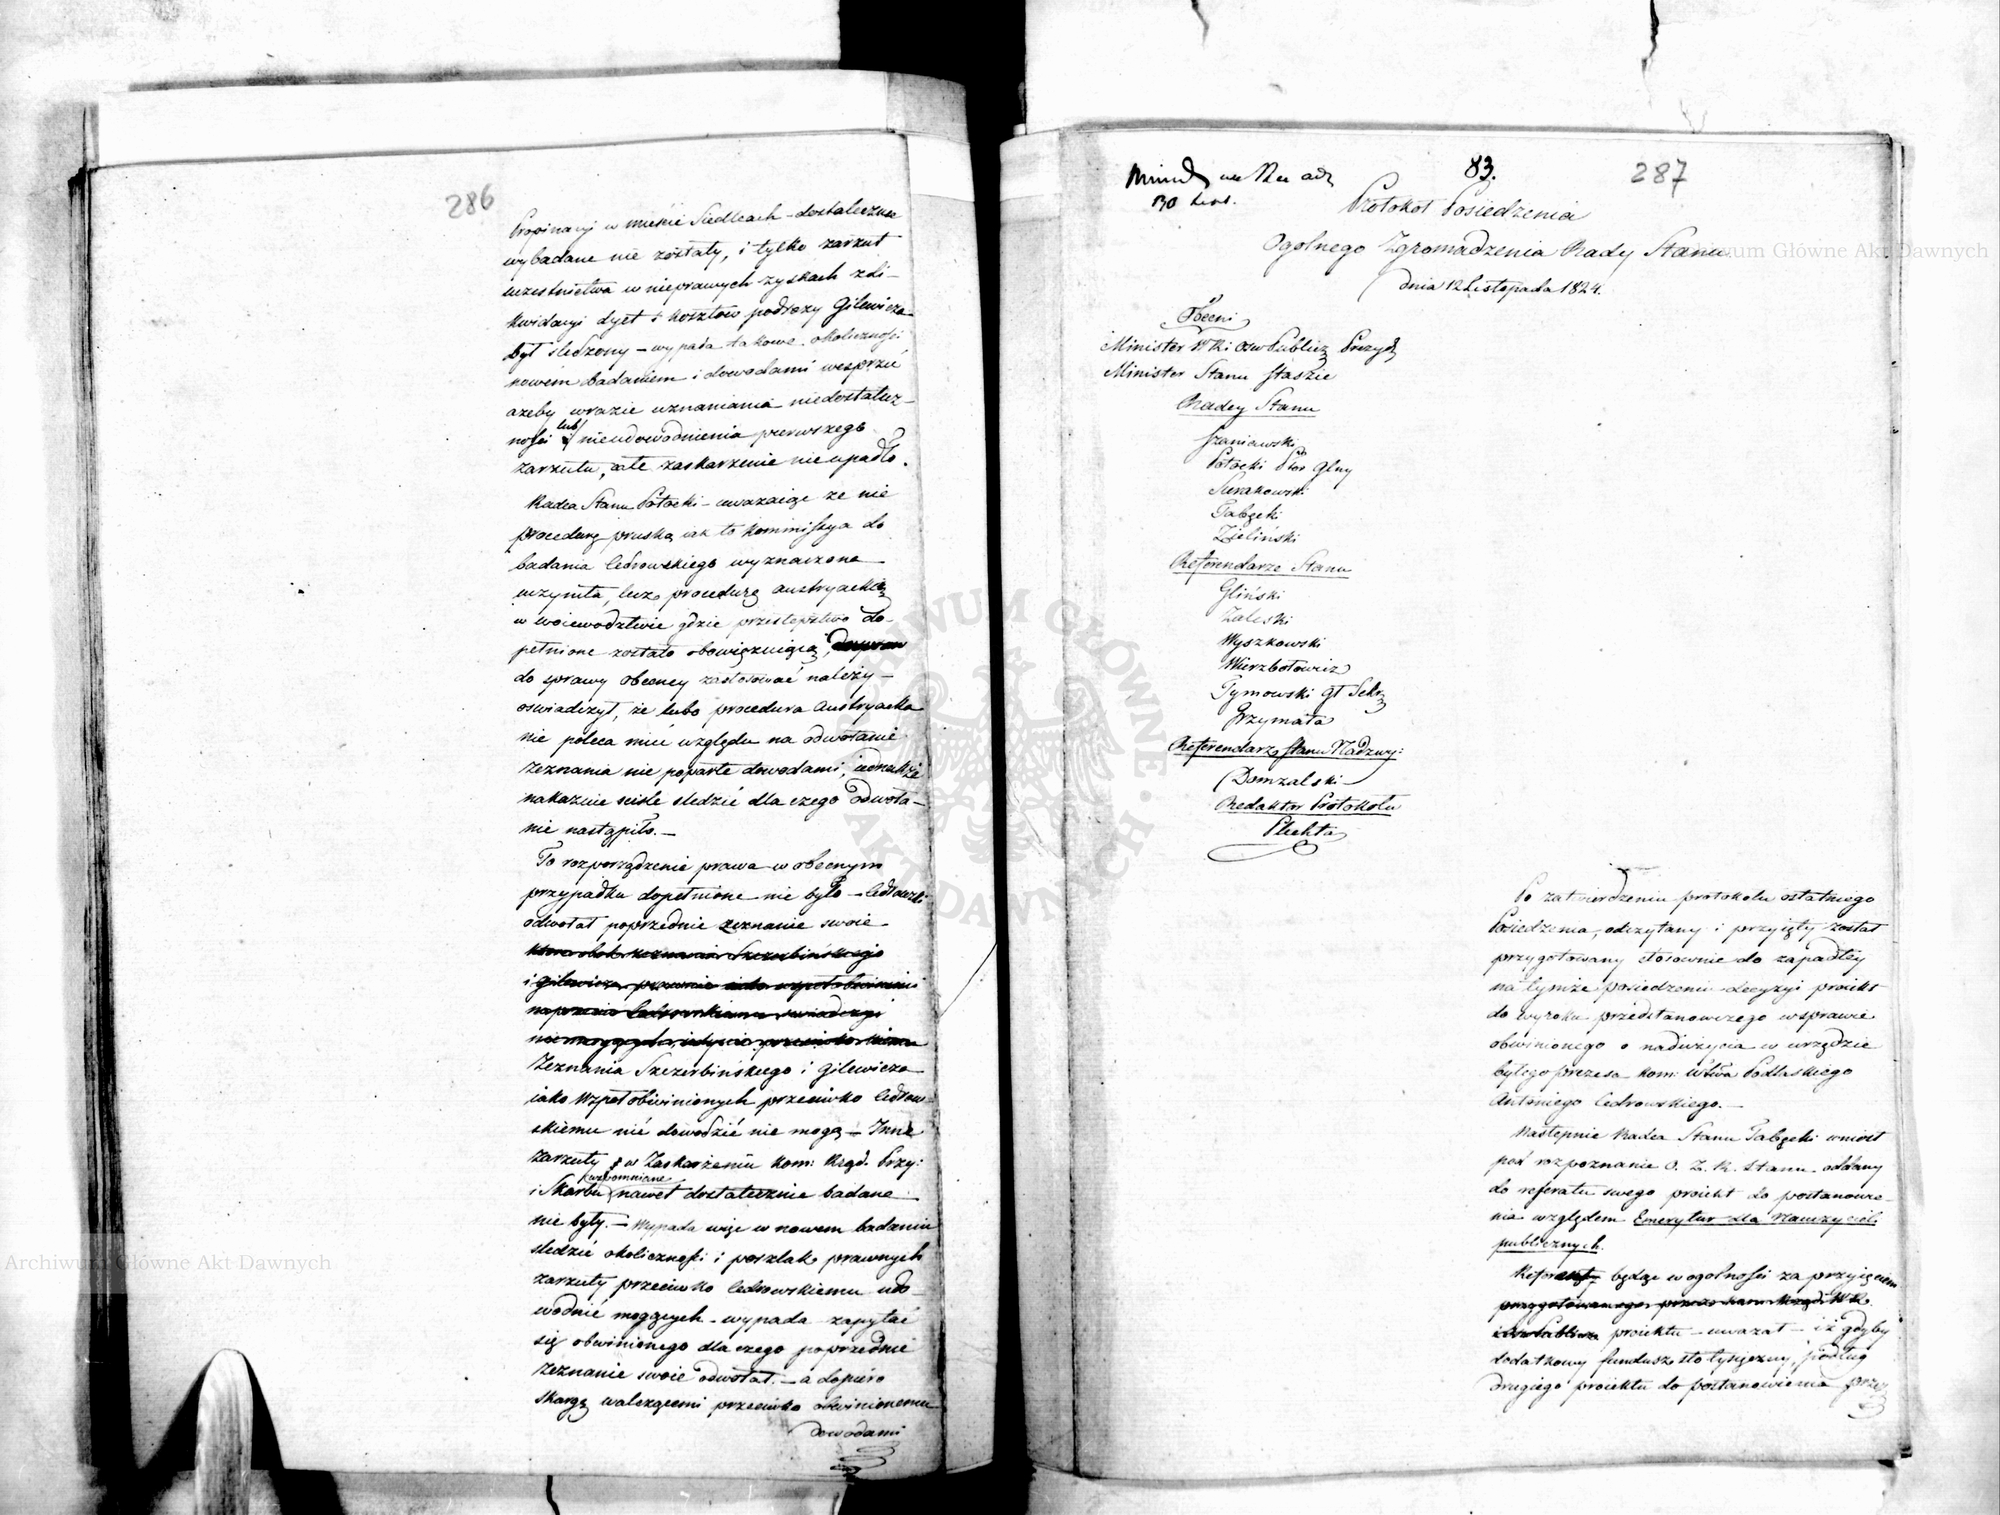 286
Propinacyi w mieście Siedlcach – dostatecznie
wybadane nie zostały, i tylko zarzut
uczestnictwa w nieprawych zyskach z li-
kwidacyi dyet i kosztów podróży Gilewicza
był śledzony – wypada takowe okoliczności
nowem badaniem i dowodami wesprzeć
ażeby w razie uznania niedostatecz-
ności lub nieudowodnienia pierwszego
zarzutu, całe zaskarżenie nie upadło.
Radca Stanu Potocki – uważaiąc że nie
procedurę pruską iak to Kommissya do
badania Cedrowskiego wyznaczona
uczyniła, lecz procedurę austryacką
w woiewodztwie gdzie przestępstwo do-
pełnione zostało obowięzuiącą,
do sprawy obecney zastosować należy –
oświadczył, że lubo procedura Austryacka
nie poleca mieć względu na odwołanie
zeznania nie poparte dowodami, iednakże
nakazuie ściśle śledzić dla czego odwoła-
nie nastąpiło. –
To rozporządzenie prawa w obecnym
przypadku dopełnione nie było – Cedrowski
odwołał poprzednie zeznanie swoie
zeznania Szczerbińskiego
i Gilewicza
Zeznania Szczerbińskiego i Gilewicza
iako wspołobwinionych przeciwko Cedrow-
skiemu nic dowodzić nie mogą – Inne
zarzuty w Zaskarżeniu Kom: Rząd. Przy:
i Skarbu wspomniane nawet dostatecznie badane
nie były. – Wypada więc w nowem badaniu
śledzić okoliczności i poszlak prawnych
zarzuty przeciwko Cedrowskiemu udo-
wodnić mogących – wypada zapytać
się obwinionego dla czego poprzednie
zeznanie swoie odwołał. – a dopiero
skargę walczącemi przeciwko obwinionemu
dowodami
83.
287
Protokół Posiedzenia
Ogolnego Zgromadzenia Rady Stanu
dnia 12 Listopada 1824.
Obecni
Minister W Ri Osw Publicz Prezyd
Minister Stanu Staszic
Radcy Stanu
Szaniawski
Potocki Pror Glny
Surakowski
Tabęcki
Zieliński
Referendarze Stanu
Gliński
Zaleski
Wyszkowski
Wierzbołowicz
Tymowski gł Sekr
Grzymała
Referendarz Stanu Nadzwy:
Domzalski
Redaktor Protokołu
Plichta
Po zatwierdzeniu protokołu ostatniego
Posiedzenia, odczytany i przyięty został
przygotowany stosownie do zapadłey
na tymże posiedzeniu decyzyi proiekt
do wyroku przedstanowczego w sprawie
obwinionego o nadużycia w urzędzie
byłego prezesa Kom: Wtwa Podlaskiego
Antoniego Cedrowskiego. –
Następnie Radca Stanu Tabęcki wniósł
pod rozpoznanie O. Z. R. Stanu oddany
do referatu swego proiekt do postanowie-
nia względem Emerytur dla Nauczycieli
publicznych.
Referent będąc w ogolności za przyięciem
przygotowanego przez Kom: Rząd: W R.
i Osw Publicz proiektu – uważał – iż gdyby
dodatkowy fundusz sto tysięczny, podług
drugiego proiektu do postanowienia przez
Archiwum Główne Akt Dawnych
Archiwum Główne Akt Dawnych
ARCHIWUM GŁÓWNE AKT DAWNYCH